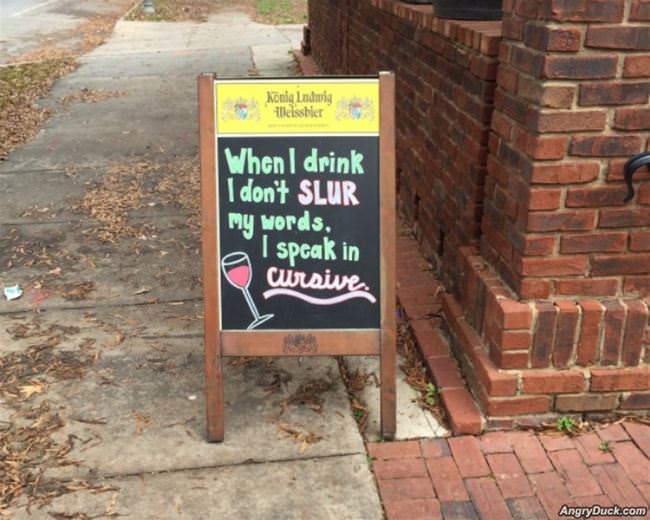 König Ludwig
Weissbier
When I drink
I don't SLUR
my words,
I speak in
cursive.
AngryDuck.com